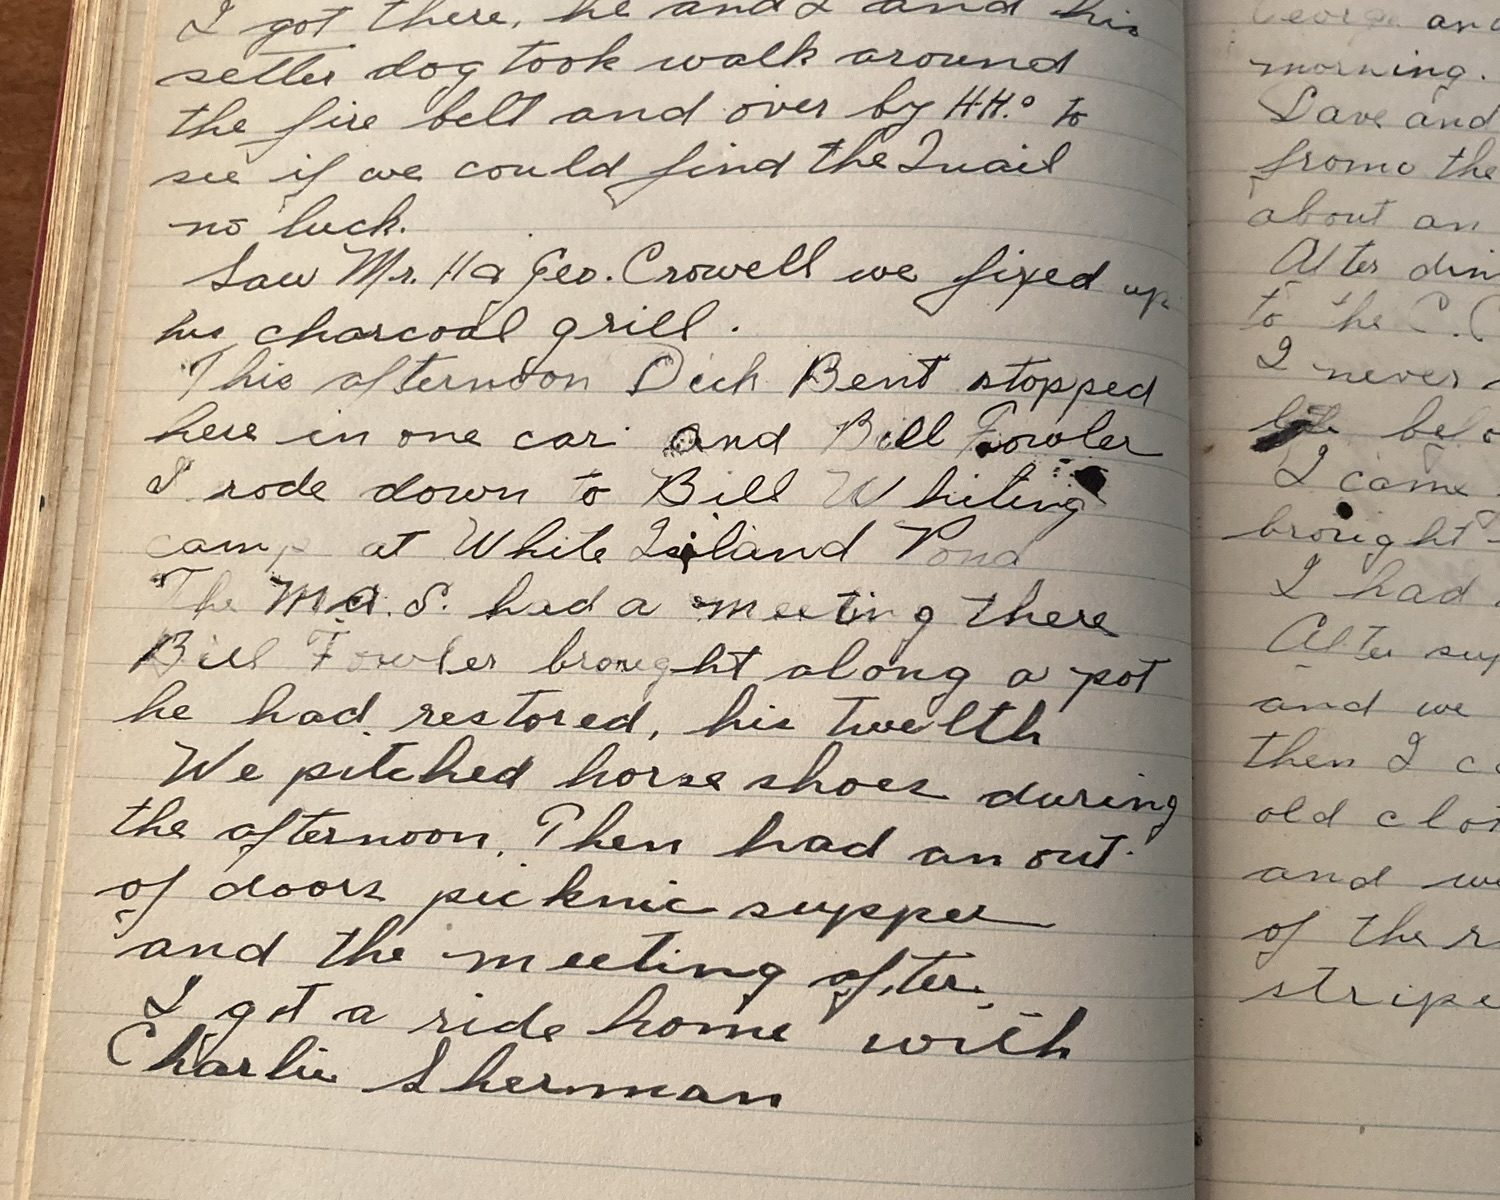 I got there, he and I and his
setter dog took walk around
the fire belt and over by H.H.º to
see if we could find the Quail
no luck.
Saw Mr. H & Geo. Crowell we fixed up
his charcoal grill.
This afternoon Dick Bent stopped
here in one car and Bill Fowler
I rode down to Bill Whiting
camp at White Island Pond
The M.A.S. had a meeting there
Bill Fowler brought along a pot
he had restored, his twelth
We pitched horse shoes during
the afternoon. Then had an out
of doors picknic supper
and the meeting after.
I got a ride home with
Charlie Sherman
George and
morning.
Dave and
from the
about an
After din
to the C.C
I never
be
I came
brought
I had
After sup
and we
then I c
old clot
and we
of the r
stripe